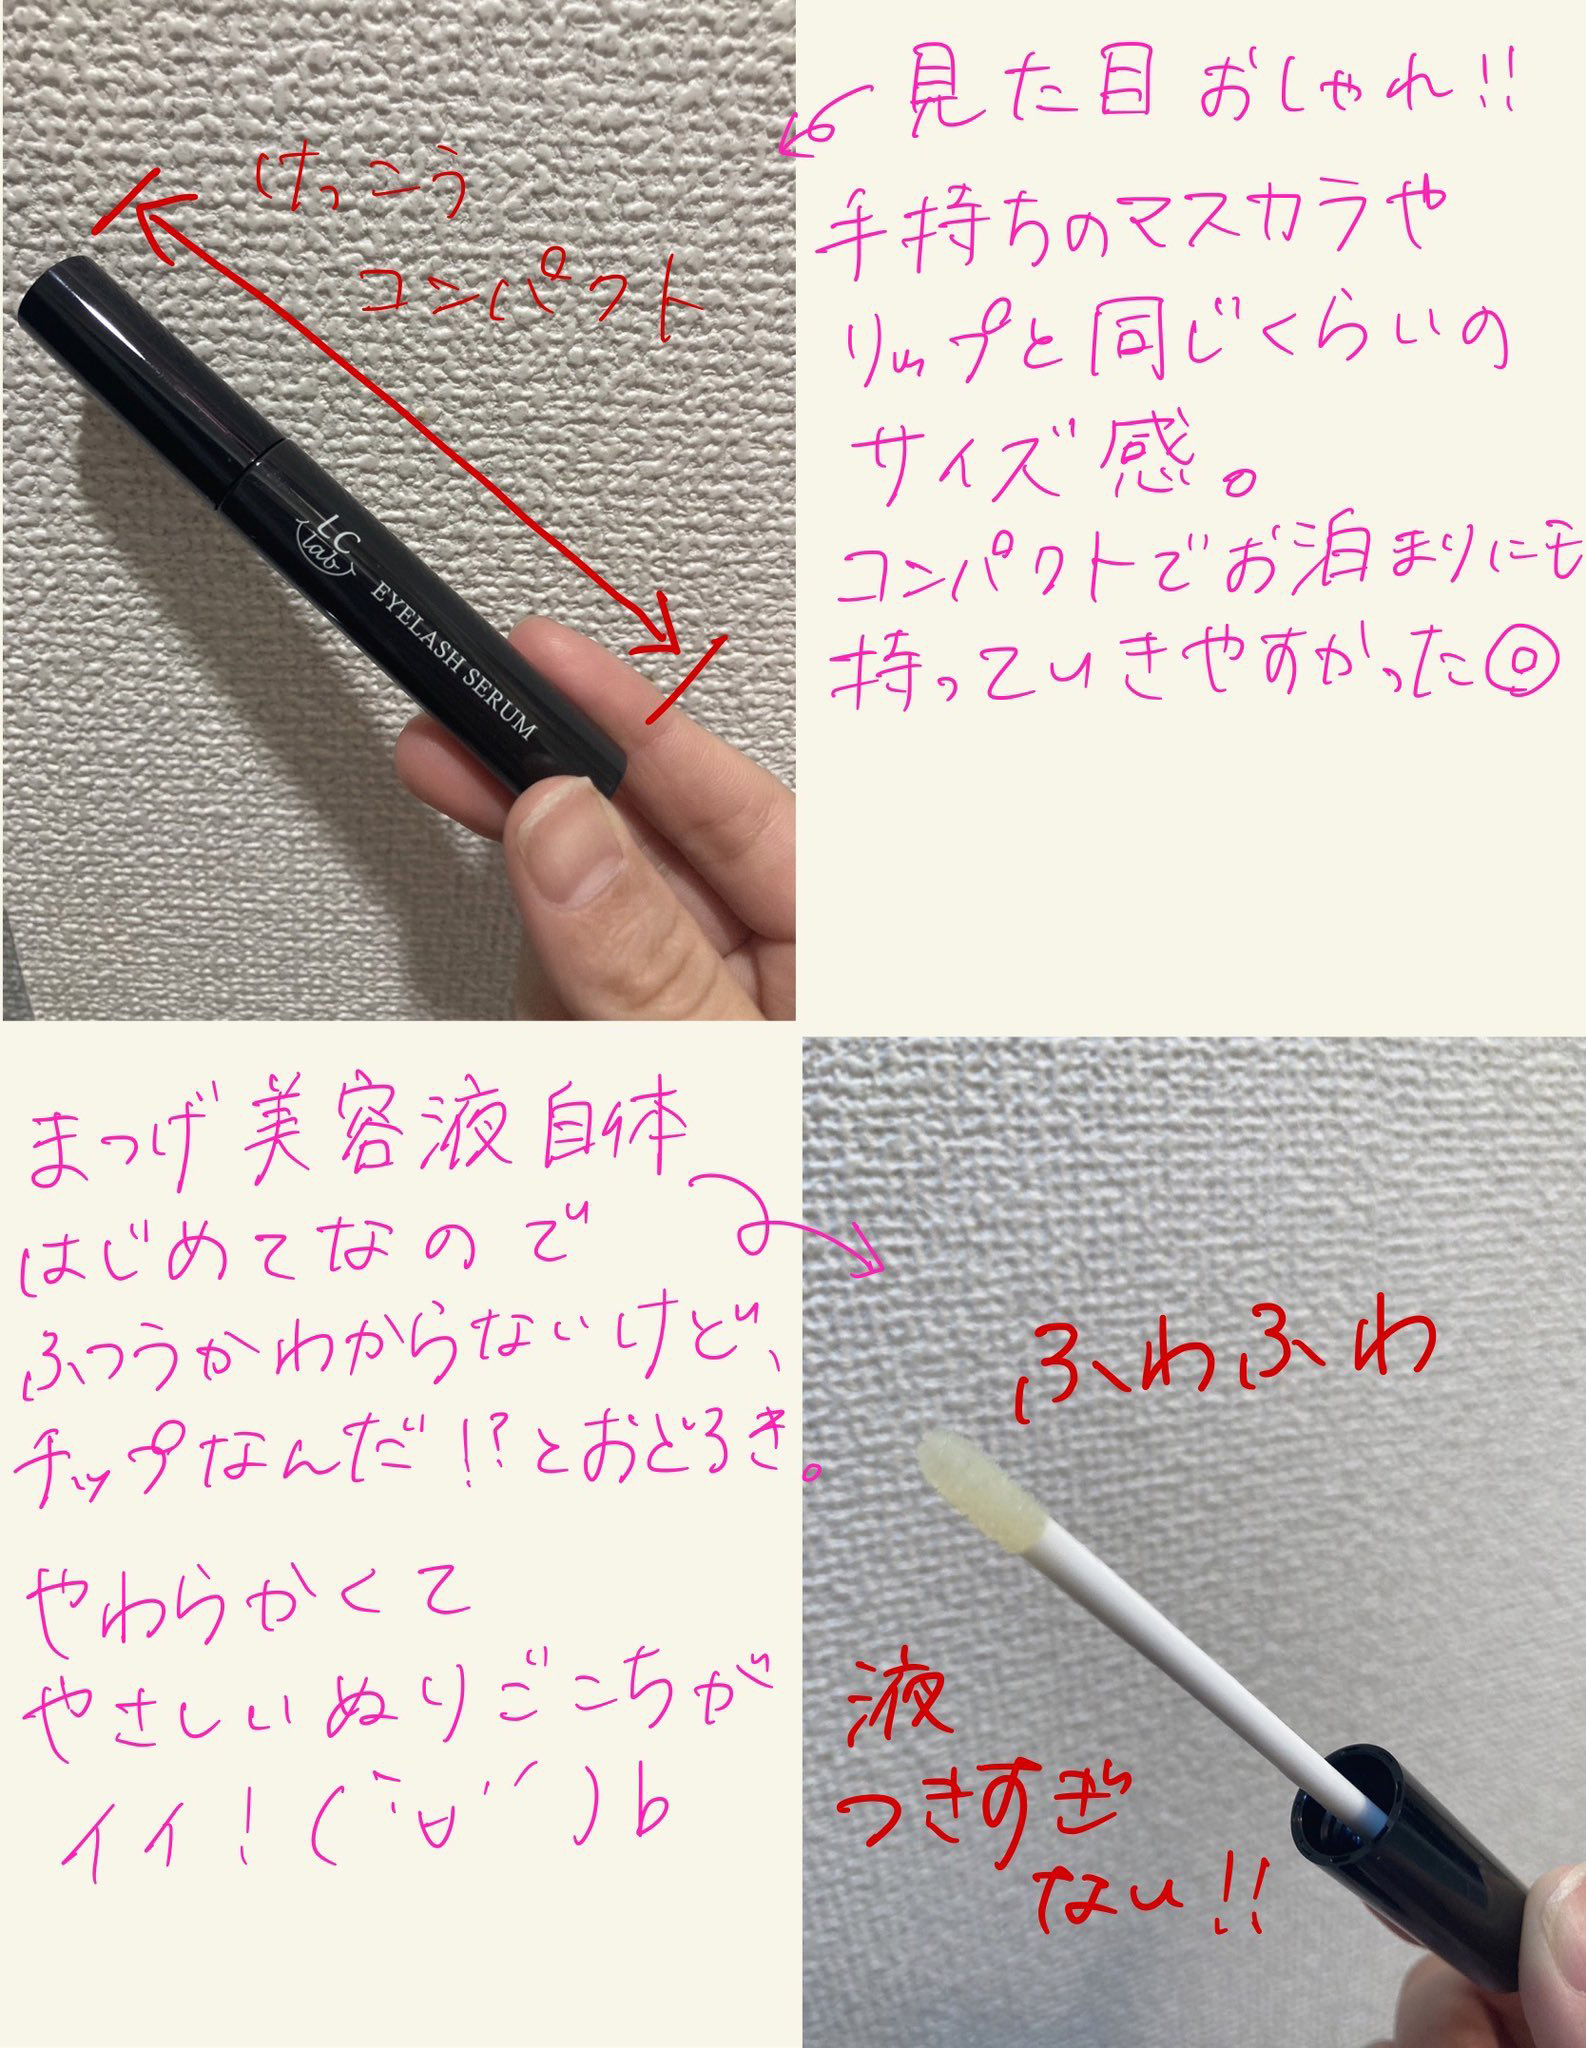 けっこう
コンパクト
LC
lab
EYELASH SERUM
見た目おしゃれ!!
手持ちのマスカラや
リップと同じくらいの
サイズ感。
コンパクトでお泊まりにも
持っていきやすかった◎
まつげ美容液自体
はじめてなので
ふつうかわからないけど、
チップなんだ!?とおどろき。
やわらかくて
やさしいぬりごこちが
イイ!(`∀´)b
ふわふわ
液
つきすぎ
ない!!